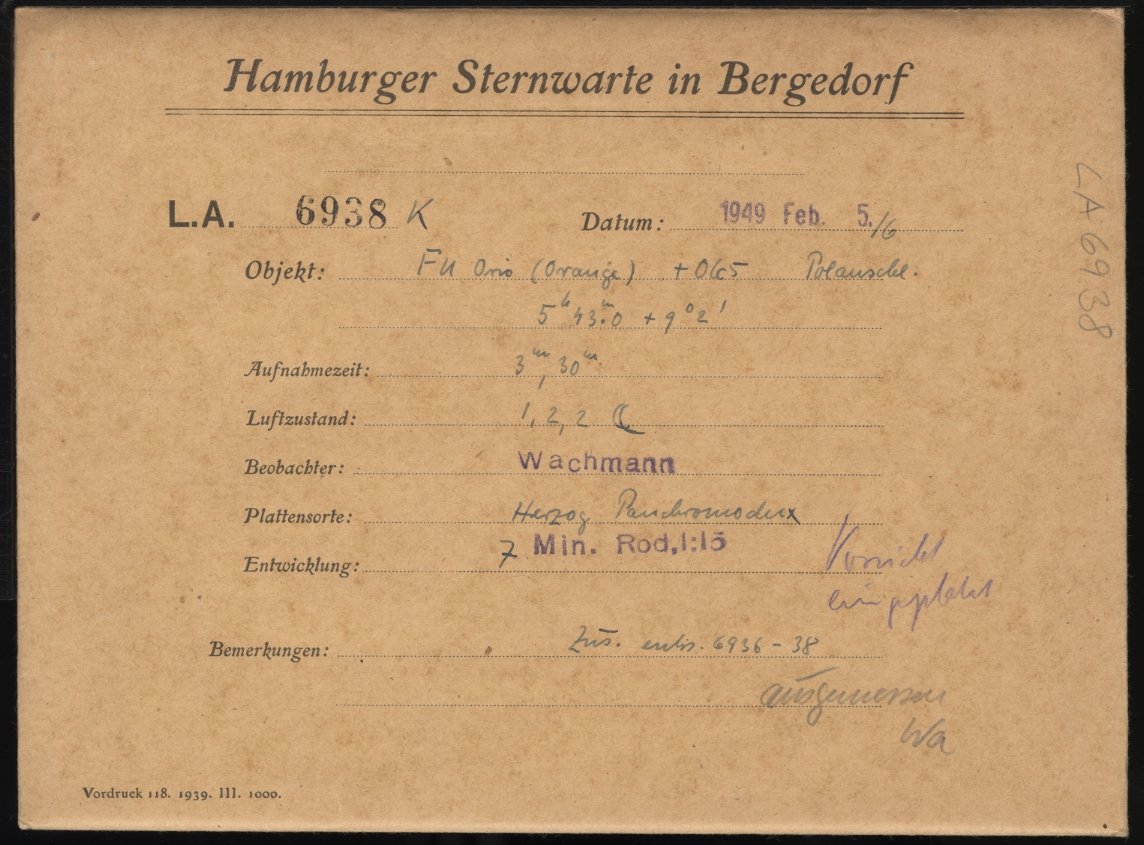 Hamburger Sternwarte in Bergedorf
L.A. 6938 K Datum: 1949 Feb. 5./6
Objekt: FU Orio (Orange) + Polanschl.
5ʰ 43ᵐ.0 + 9° 2'
Aufnahmezeit: 3ᵐ, 30ᵐ
Luftzustand: 1, 2, 2 ☾
Beobachter: Wachmann
Plattensorte: Herzog Panchromodux
Entwicklung: 7 Min. Rod, 1:15
Vorsicht
Bemerkungen: Zus. entw. 6936 - 38
ausgemessen
Wa
Vordruck 118. 1939. III. 1000.
LA 6938